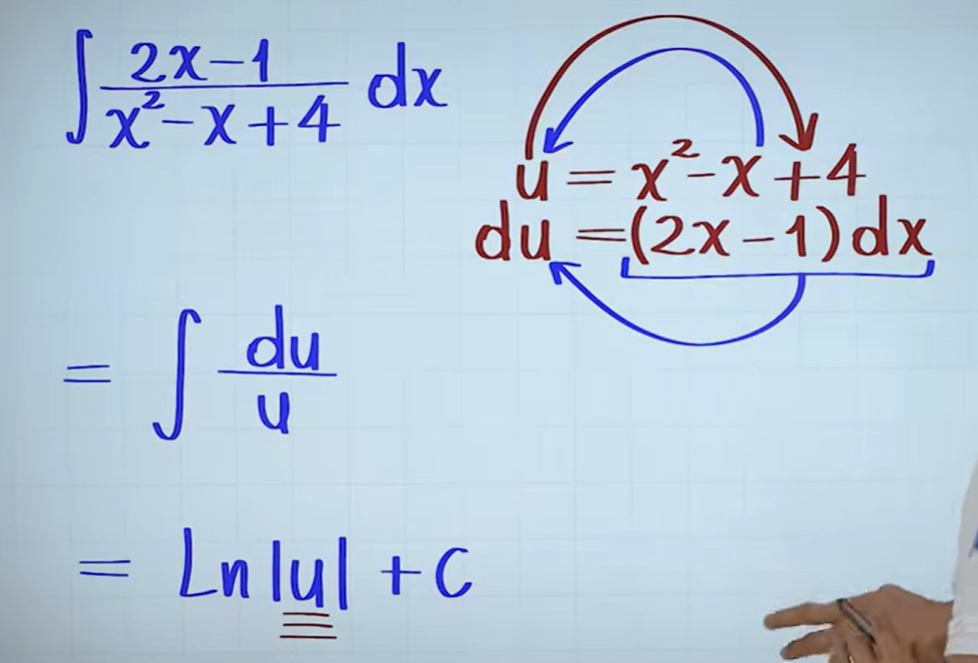 ∫ (2x-1)/(x²-x+4) dx
u = x²-x+4
du = (2x-1)dx
= ∫ du/u
= Ln|u| + C